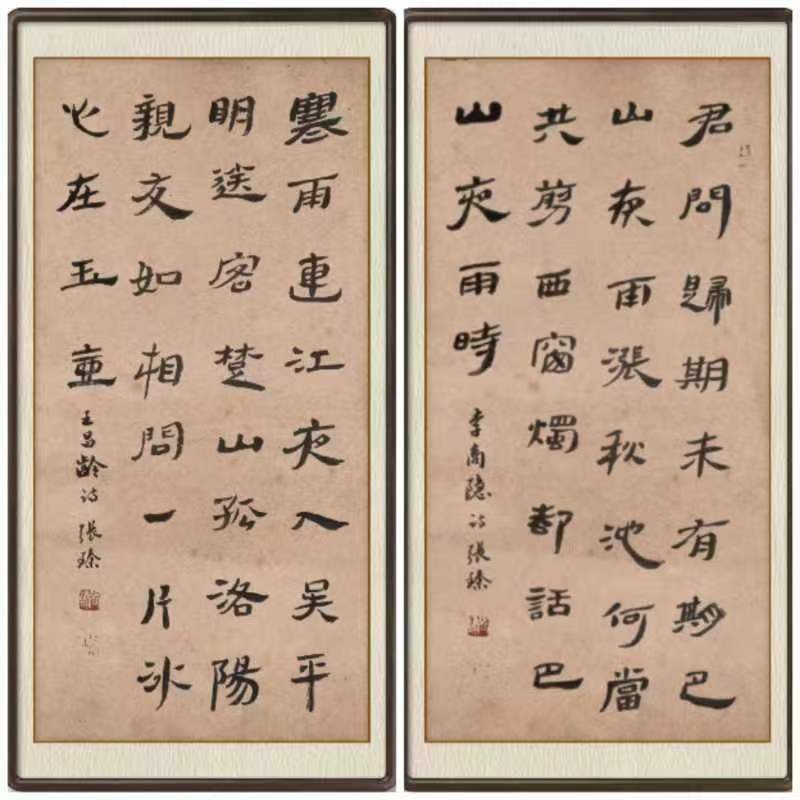 君問歸期未有期巴
山夜雨漲秋池何當
共剪西窗燭却話巴
山夜雨時
李商隱诗 張
寒雨連江夜入吴平
明送客楚山孤洛陽
親友如相問一片冰
心在玉壺
王昌齡诗 張